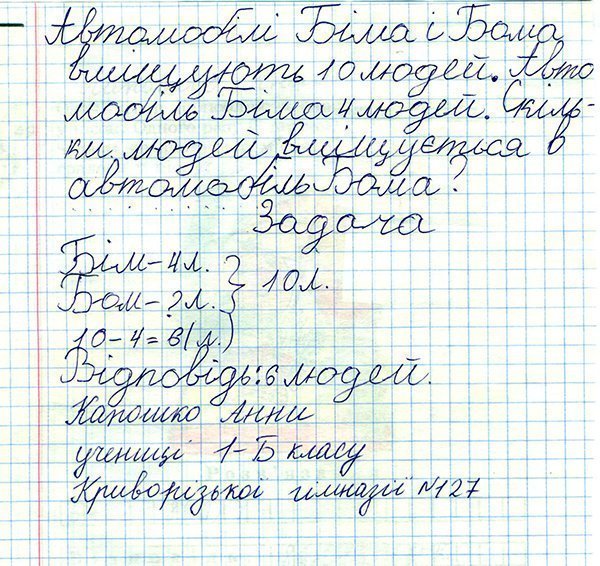 Автомобілі Біма і Бома
вміщують 10 людей. Авто
мобіль Біма 4 людей. Скіль-
ки людей вміщується в
автомобіль Бома?
Задача
Бім – 4 л.
Бом – ? л. } 10 л.
10 – 4 = 6 (л.)
Відповідь: 6 людей.
Капошко Анни
учениці 1-Б класу
Криворізької гімназії №127